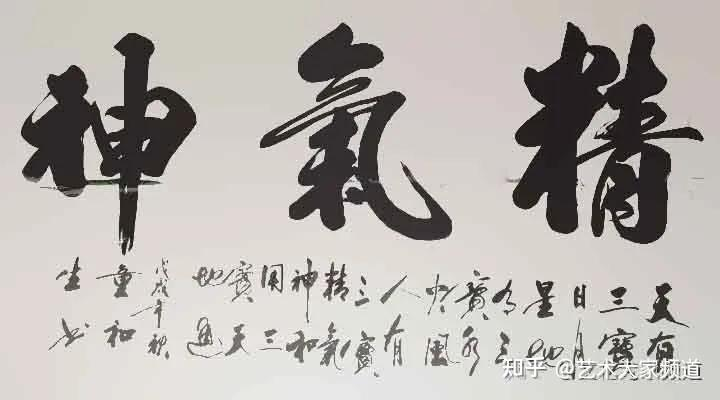 精氣神
天有
三寶
日月
星地
有三
寶水
火風
人有
三寶
精氣
神和
用三
寶天
地通
戊戌年秋
和
生书
知乎 @艺术大家频道